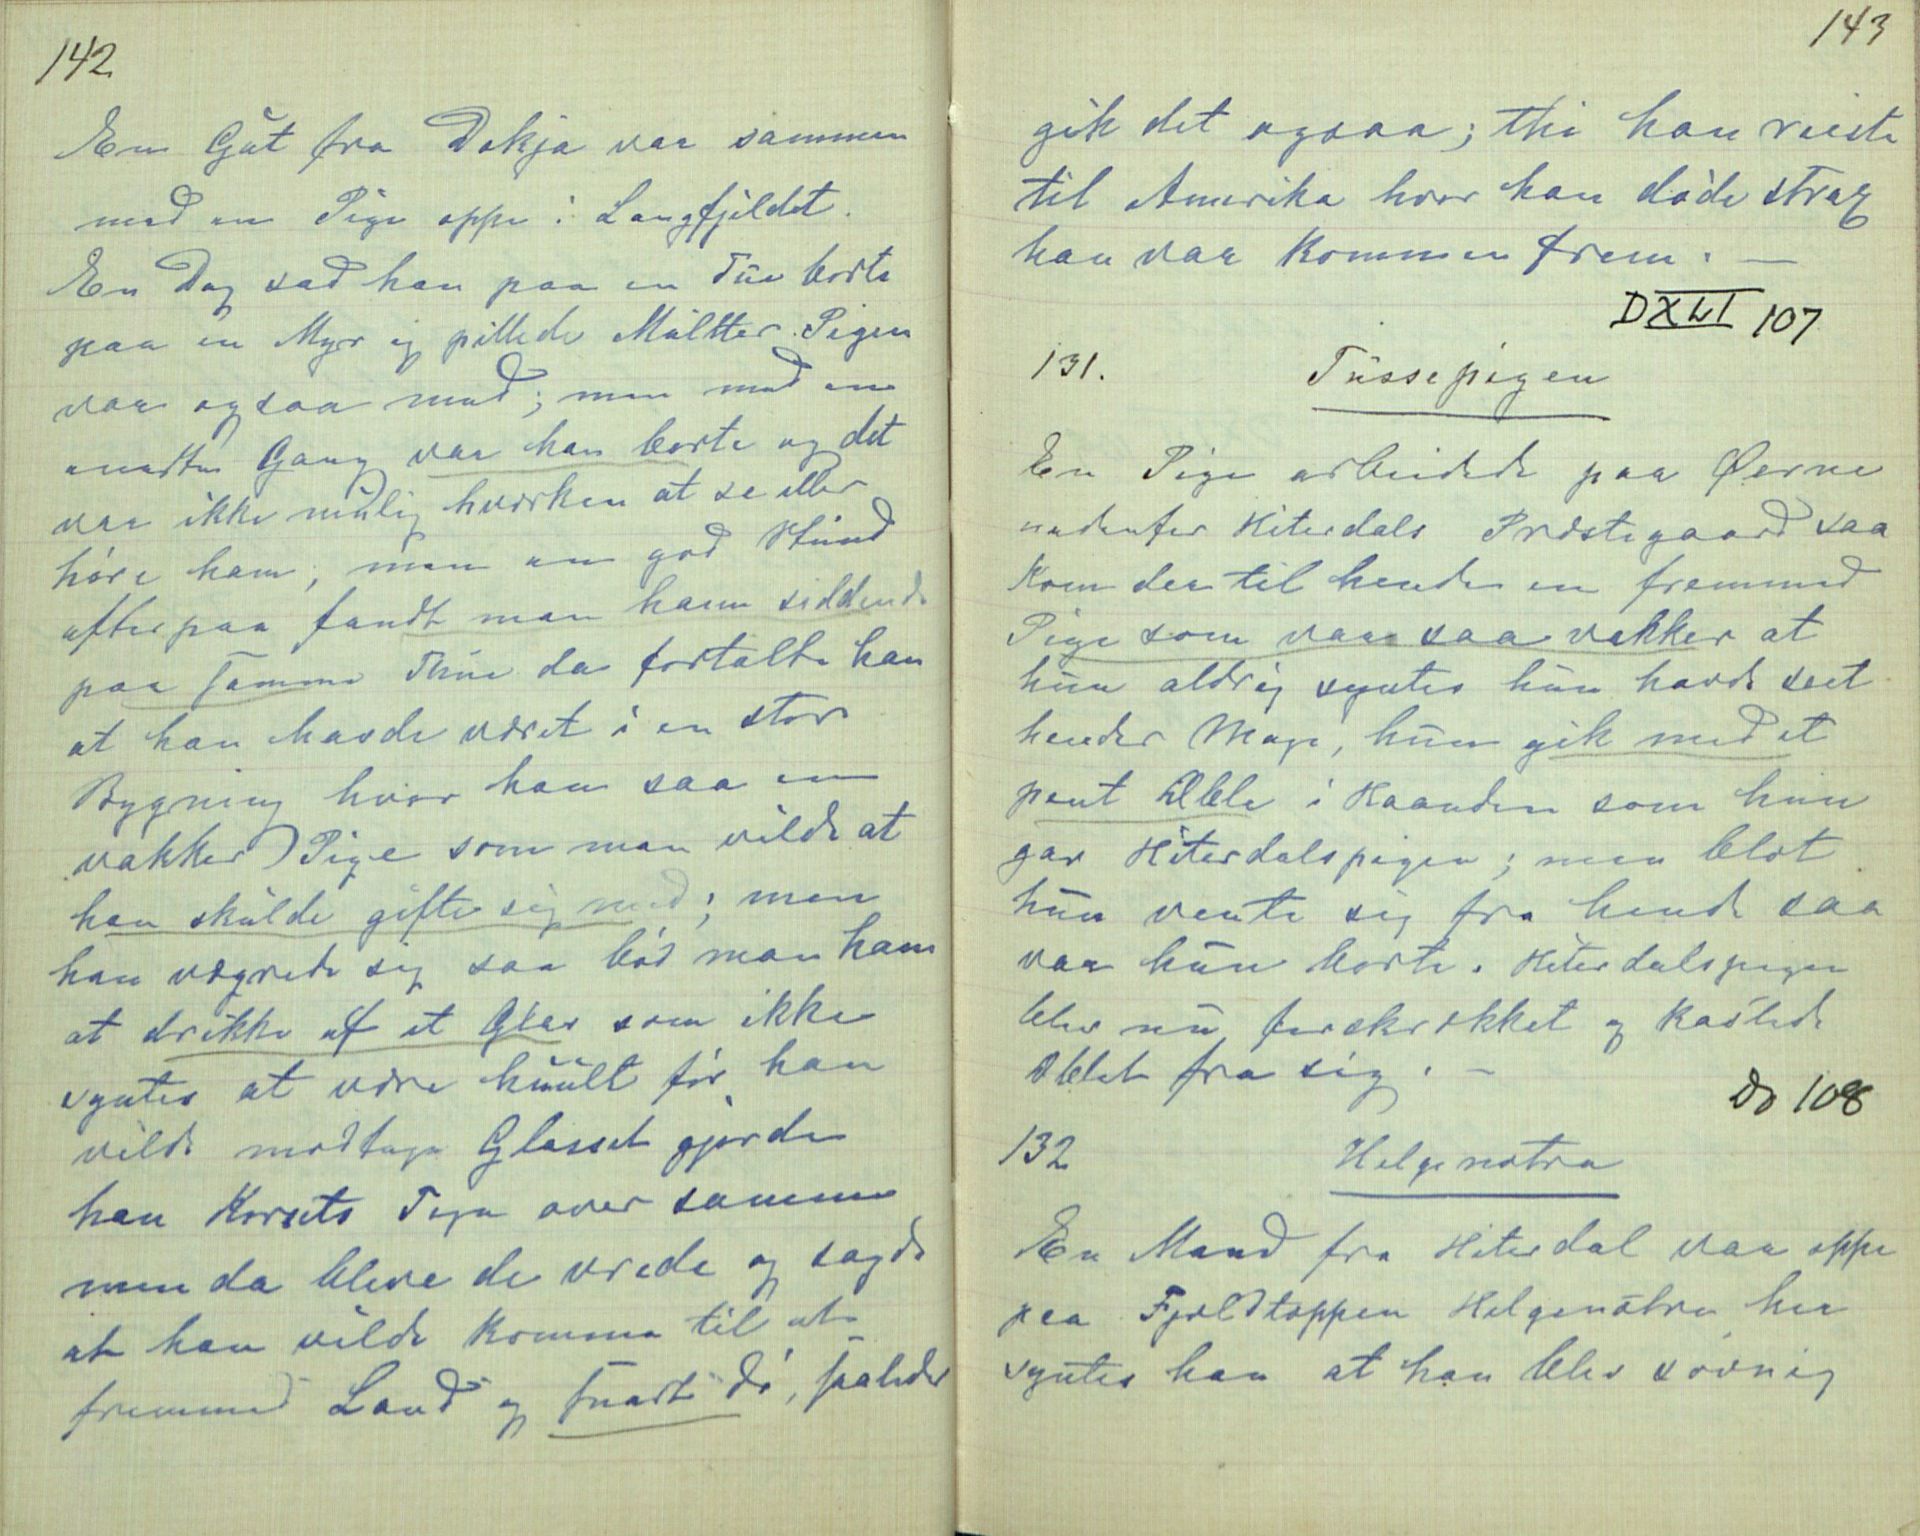 142
En Gut fra Dekja var sammen
med en Pige oppe i Langfjeldet.
En Dag sad han paa en Tue borte
paa en Myr og pillede Multter. Pigen
var ogsaa med; men med en
anesten Gang var han borte og det
var ikke mulig hværken at se eller
høre ham, men en god Stund
efterpaa fandt man ham siddende
paa samme Thue da fortalte han
at han havde været i en stor
Bygning hvor han saa en
vakker Pige som man vilde at
han skulde gifte sig med; men
han vægrede sig saa bød man ham
at drikke af et Glas som ikke
syntes at være huult før han
vilde modtage Glasset gjorde
han Korsets Tegn over samme
men da bleve de vrede og sagde
at han vilde komme til et
fremmed Land og snart dø, saaleder
143
gik det ogsaa; thi han reiste
til Amerika hvor han døde strax
han var kommen frem. —
DXLI 107
131. Tussepigen
En Pige arbeidede paa Øerne
nedenfor Hiterdals Præstegaard saa
kom der til hende en fremmed
Pige som var saa vakker at
hun aldrig syntes hun havde seet
hendes Mage, hun gik med et
pent Æble i Haanden som hun
gav Hiterdalspigen; men blot
hun vente sig fra hende saa
var hun borte. Hiterdalspigen
blev nu forskrækket og kastede
Æblet fra sig. —
Do 108
132 Helgenøtra
En Mand fra Hiterdal var oppe
paa Fjeldtoppen Helgenøtra, her
syntes han at han blev søvnig